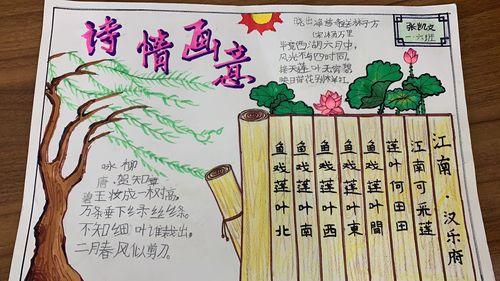 诗情画意
晓出净慈寺送林子方
宋 杨万里
毕竟西湖六月中，
风光不与四时同。
接天莲叶无穷碧，
映日荷花别样红。
张凯文
一·六班
咏柳
唐·贺知章
碧玉妆成一树高，
万条垂下绿丝绦。
不知细叶谁裁出，
二月春风似剪刀。
江南·汉乐府
江南可采莲
莲叶何田田
鱼戏莲叶間
鱼戏莲叶東
鱼戏莲叶西
鱼戏莲叶南
鱼戏莲叶北